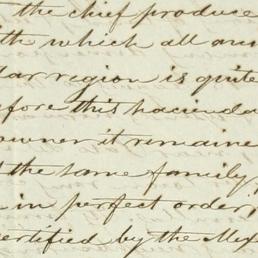 the chief produce
which all
region is quite
before this hacienda
owner it remaine
the same family,
in perfect order;
certified by the Mex